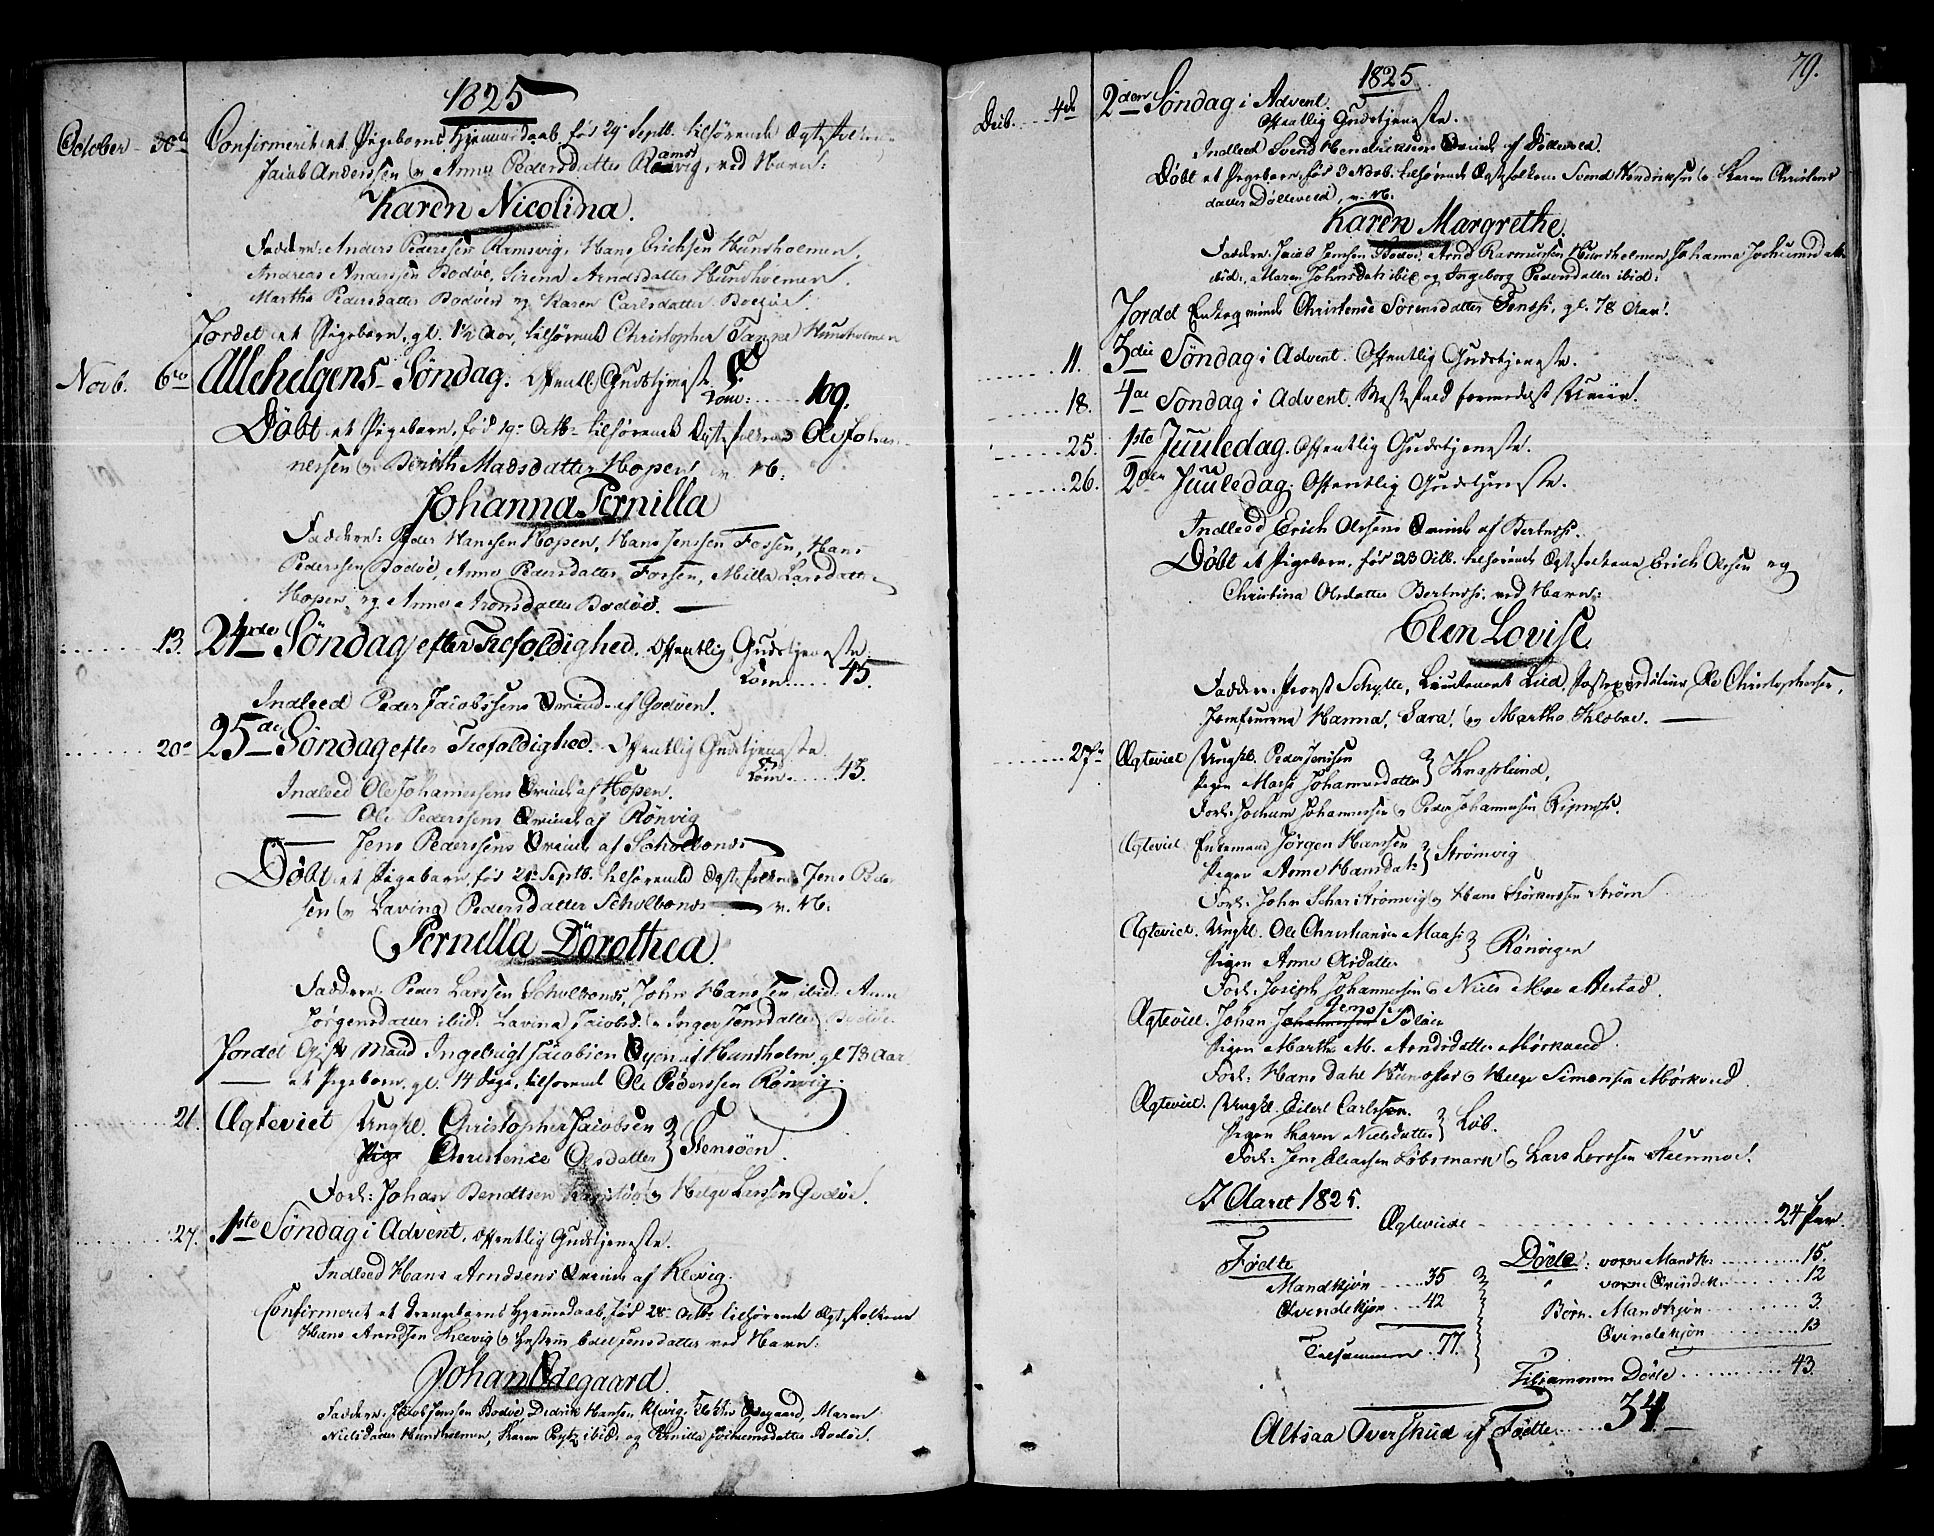 1825
October 30te Confirmeret et Pigebarns Hjemmedaab, fød 29 Septb. tilhørende Ægtefolkene
Jacob Anderssen og Anne Pedersdatter Ramsvig, ved Navn:
Karen Nicolina.
Faddere: Anders Pederssen Ramsvig, Hans Erichsen Hundholmen,
Andreas Anderssen Bodøe, Sirena Arndsdatter Hundholmen,
Martha Pedersdatter Bodøen og Karen Carlsdatter
Jordet et Pigebarn, gl. 1½ Aar, tilhørende Christopher Hundholmen
Novb. 6te Allehelgens Søndag. Offentl. Gudstjeneste
Com: 109.
Døbt et Pigebarn, fød 19 Octb. tilhørende Ægtefolkene Ole Johan-
nessen og Berith Madsdatter Hopen, v. N:
Johanna Pernilla
Faddere: Peder Hanssen Hopen, Hans Jenssen Fossen, Hans
Pederssen Bodøe, Anne Pedersdatter Fossen, Milla Larsdatter
Hopen, og Anne Aronsdatter Bodøe.
13. 24de Søndag efter Trefoldighed. Offentlig Gudstjeneste.
Com. 45.
Indleed Peder Jacobssens Qvinde af Godøen.
20de 25de Søndag efter Trefoldighed. Offentlig Gudstjeneste
Com. 43.
Indleed Ole Johannessens Qvinde af Hopen.
— Ole Pederssens Qvinde af Rønvig
— Jens Pederssens Qvinde af Scholbones
Døbt et Pigebarn, fød 21 Septb. tilhørende Ægtefolkene Jens Peder-
sen og Lavina Pedersdatter Scholbones — v. N.
Pernilla Dorothea.
Faddere: Peder Larssen Scholbones, John Hanssen ibid. Anne
Jørgensdatter ibid. Lavina Jacobsd. og Inger Jensdatter Bodøe.
Jordet Ingebrigt Jacobsen af Hundholm, gl. 78 Aar
— et Pigebarn, gl. 14 Dage, tilhørende Ole Pederssen Rønvig.
21. Ægteviet Ungkl. Christopher Jacobsen
Pige Christence Olsdatter } Stensøen.
Forl: Johan Bendtsen og Helge Larssen Godøe.
27. 1ste Søndag i Advent, Offentlig Gudstjeneste.
Indleed Hans Arndsens Qvinde af Klevig.
Confirmeret et Drengebarns Hjemmedaab, fød 28 Octb. tilhørende Ægtefolkene
Hans Arndtsen Klevig og Jensdatter ved Navn:
Johan Ødegaard.
Faddere: Jacob Jenssen Bodøe, Didrik Hansen Klevig, Ødegaard, Maren
Nielsdatter Hundholmen, Karen ibid. og Pernilla Jochumsdatter Bodøe.
1825
79.
Decb. 4de 2den Søndag i Advent.
Offentlig Gudstjeneste.
Indleed Svend Hendricksens Qvinde af Dølleveed.
Døbt et Pigebarn, fød 3 Novb. tilhørende Ægtefolkene Svend Hendriksen og Karen Christens
datter Dølleveed, v. N.
Karen Margrethe.
Faddere: Jacob Jensen Bodøe, Arnd Rasmussen Hundholmen, Johanna Jochumsdatter
ibid., Maren Johnsdatr ibid. og Ingeborg Pedersdatter ibid:
Jordet Enkeqvinde Christence Sørensdatter gl. 78 Aar.
11. 3die Søndag i Advent. Offentlig Gudstjeneste.
18. 4de Søndag i Advent. Messefald formedelst Uveir.
25. 1ste Juuledag. Offentlig Gudstjeneste.
26. 2den Juuledag. Offentlig Gudstjeneste.
Indleed Erich Olssens Qvinde af Bertness.
Døbt et Pigebarn, fød 23 Octb. tilhørende Ægtefolkene Erich Olssen og
Christina Olsdatter Bertness. ved Navn:
Elen Lovise
Faddere: Provst Schytte, Lieutenant Lied, Postexpediteur Ole Christophersen,
Jomfruerne Hanna, Sara, og Martha Kloboe. —
27de Ægteviet Ungkl. Peder Jenssen
Pigen Johannesdatter } Knaplund,
Forl: Jochum Johannessen og Peder Johannessen Ripness.
Ægteviet Enkemand Jørgen Hanssen
Pigen Anne Hansdatr } Strømvig
Forl: John Schar Strømvig og Hans Strøm
Ægteviet. Ungkl. Ole Christiansen Maasø
Pigen Anne Olsdatter } Rønvigen
Forl: Joseph Johannessen og Niels Moe Alestad.
Ægteviet. Johan
Pigen Martha M. Arndsdatter Mørkveed
Forl: Hans Dahl og Helge Simonsen Mørkved.
Ægteviet. Ungkl. Eilert Carlssen.
Pigen Karen Nielsdatter } Løb.
Forl: Jens Eliassen Løbsmark og Lars Larssen
I Aaret 1825.
Ægteviede 24 Par.
Fødte
Mandkjøn 35
Qvindekjøn 42
Tilsammen 77.
Døde: voxne Mandk. 15.
" voxne Qvindek. 12
Børn. Mandkjøn 3.
Qvindekjøn 13
Tilsammen Døde 43.
Altsaa Overskud af Fødte 34.